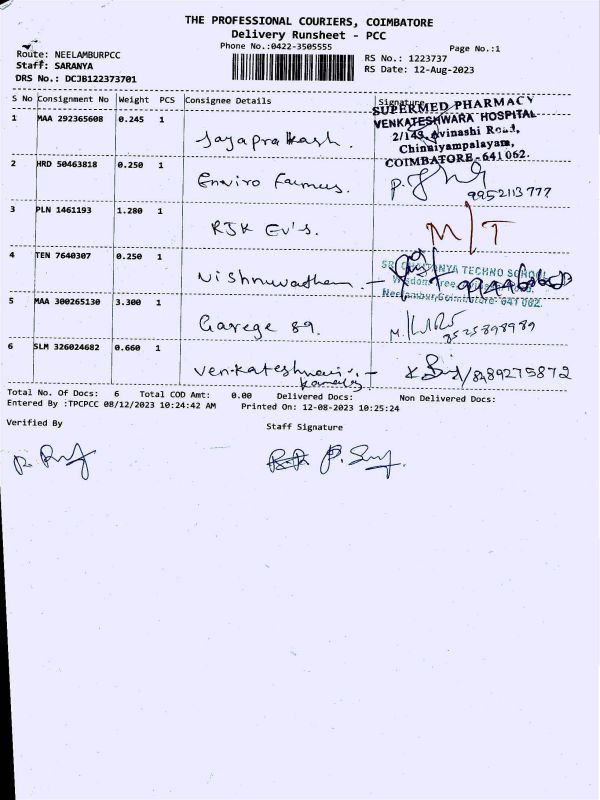 THE PROFESSIONAL COURIERS, COIMBATORE
Delivery Runsheet - PCC
Phone No.:0422-3505555 Page No.:1
Route: NEELAMBURPCC RS No.: 1223737
Staff: SARANYA RS Date: 12-Aug-2023
DRS No.: DCJB122373701
S No Consignment No Weight PCS Consignee Details Signature
SUPERMED PHARMACY
1 MAA 292365608 0.245 1 VENKATESHWARA HOSPITAL
2/143, Avinashi Road,
Jayaprakash. Chinniyampalayam,
COIMBATORE-641 062.
2 HRD 50463818 0.250 1
Enviro Farmers. 9952113777
3 PLN 1461193 1.280 1
RJK EV's. M/T
4 TEN 7640307 0.250 1
SRI CHAITANYA TECHNO SCHOOL
Neelambur, Coimbatore- 641 062.
5 MAA 300265130 3.300 1
Garege 89. 8525898989
6 SLM 326024682 0.660 1
8489275872
Total No. Of Docs: 6 Total COD Amt: 0.00 Delivered Docs: Non Delivered Docs:
Entered By :TPCPCC 08/12/2023 10:24:42 AM Printed On: 12-08-2023 10:25:24
Verified By Staff Signature